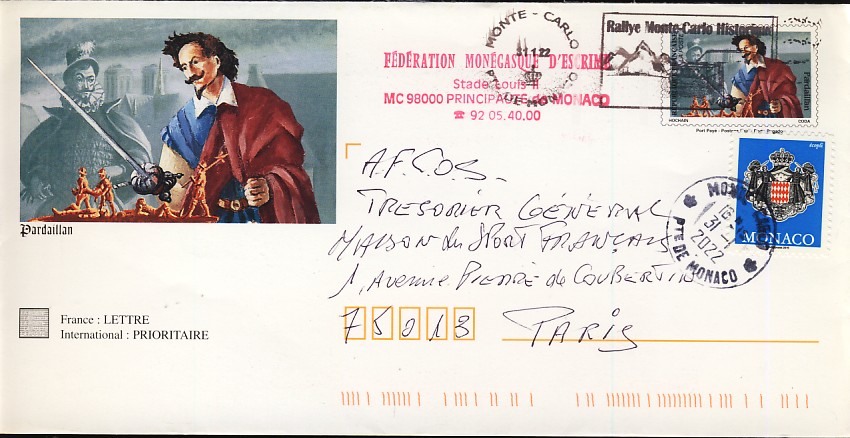 MONTE-CARLO
31.1.22
PTE DE MONACO
Rallye Monte-Carlo Historique
FÉDÉRATION MONÉGASQUE D'ESCRIME
Stade Louis II
MC 98000 PRINCIPAUTÉ de MONACO
☎ 92 05.40.00
Pardaillan
HOCHAIN
CODA
écopli
MONACO
31-1
2022
PTE DE MONACO
A.F.C.O.S.
TRESORIER GÉNÉRAL
MAISON du SPORT FRANÇAIS
1, Avenue PIERRE de COUBERTIN
75013 PARIS
Pardaillan
France : LETTRE
International : PRIORITAIRE